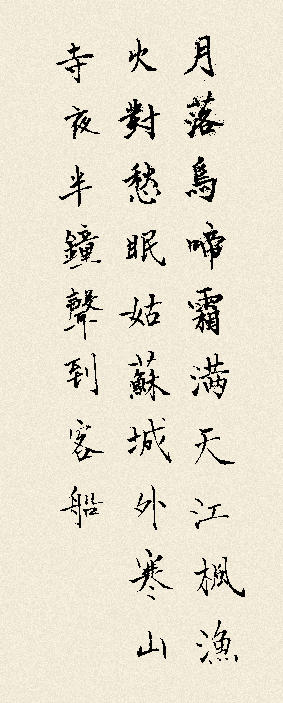 月落烏啼霜满天江楓漁
火對愁眠姑蘇城外寒山
寺夜半鐘聲到客船